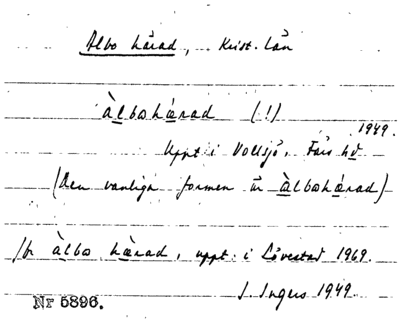 Albo härad, Krist. län
Àlbohǽrad (!)
1949.
Uppt i Vollsjö, Färs hd
(Den vanliga formen är Àlbohǽrad)
Àlbo hǽrad, uppt. i Lövestad 1969.
J. Ingers 1949
Nr 5896.